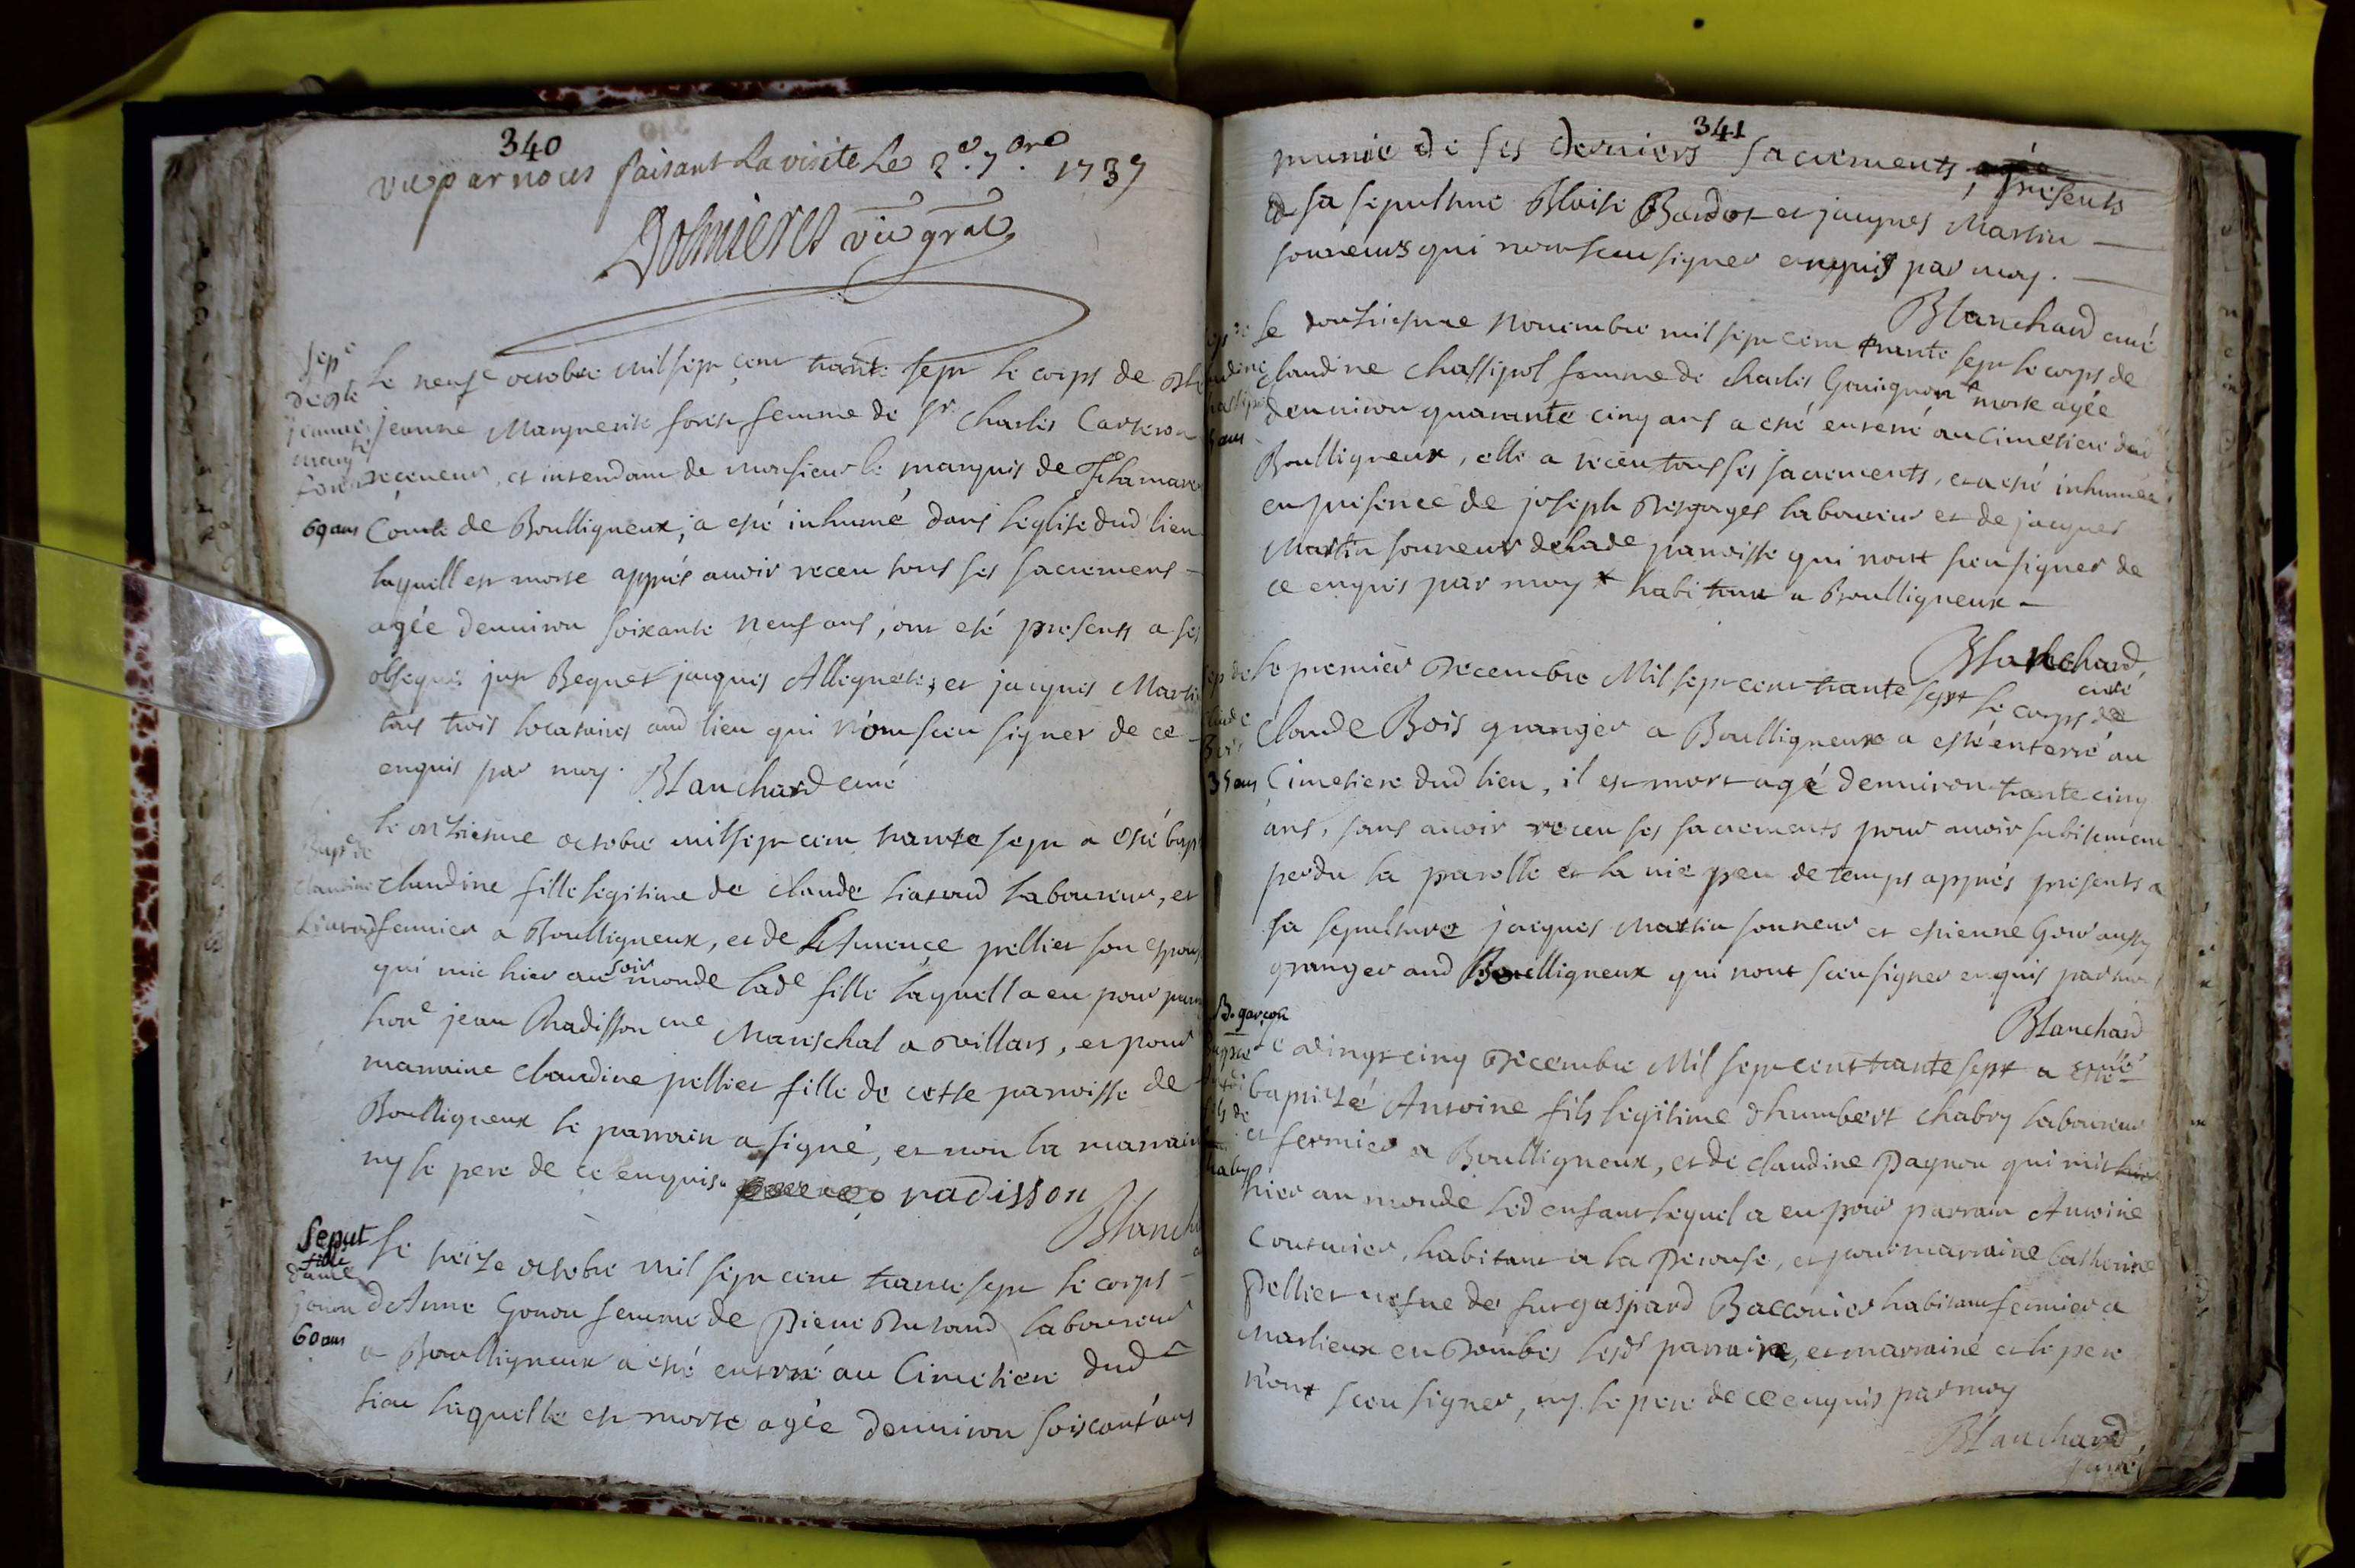 340
vu par nous faisant La visite Le 2e. 7bre. 1737
vic gral
Sepe
de gte
jeanne
marg
forest
69 ans
Le neufe octobre mil sept cent trante sept le corps de
jeanne Marguerite forest femme de Sr. Charles Carteron
receveur, et intendant de monsieur le marquis de
Comte de Boulligneux, a esté inhumé dans leglise dud lieu
laquell est morte apprés auoir receu tous ses sacremens
agée denuiron soixante neuf ans, ont esté presents a ses
obseques Beguet jacques et jacques Martin
tous trois locataires aud lieu qui n'ont sceu signer de ce
enquis par moy. Blanchard curé
Bapte de
Claudine
Liaraud
le onziesme octobre mil sept cent trante sept a esté bapt
claudine fille legitime de claude liaraud laboureur, et
fermier a Boulligneux, et de pellier son espouse
qui mit hier au soir monde lade fille laquell a eu pour
hone jean Radisson me Marischal a villars, et pour
marraine claudine pellier fille de cette parroisse de
Boulligneux le parrain a signé, et non la marraine
ny le pere de ce enquis. radisson
Blanch
Seput
fille
d'anne
Gonon
60 ans
Le seize octobre mil sept cent trante sept le corps
de Anne Gonon femme de Pierre laboureur
a Boulligneux a esté enterré au Cimetiere dud
lieu laquelle est morte agée denuiron soiscant'ans
341
munie de ses derniers sacrements, presents
a sa sepulture Blaise Bardot et jacques Martin
sonneurs qui n'ont sceu signer enquis par moy.
Blanchard curé
Le douziesme nouembre mil sept cent trante sept le corps de
claudine chassipol femme de charles Gouignon * morte agée
denuiron quarante cinq ans a esté enterré au cimetiere dud
Boulligneux, elle a receu tous ses sacrements, et a esté inhumée
en presence de joseph Desgorges laboureur et de jacques
Martin sonneur de lade parroisse qui n'ont sceu signer de
ce enquis par moy * habitant a Boulligneux
Blanchard
curé
Sep de
Claude
Bois
35 ans
Le premier Decembre Mil sept cent trante sept le corps de
Claude Bois granger a Boulligneux a esté enterré au
Cimetiere dud lieu, il est mort agé denuiron trante cinq
ans, sans auoir receu ses sacrements pour auoir subitement
perdu la parolle et la vie peu de temps apprés presents a
sa sepulture jacques Martin sonneur et estienne Goiv aussy
granger aud Boulligneux qui n'ont sceu signer enquis par moy
Blanchard
curé
B. garçon
fils de
Chabry
Le vingt cinq Decembre Mil sept cent trante sept a esté
baptizé Antoine fils legitime d'humbert chabry laboureur
et fermier a Boulligneux, et de claudine Pagnon qui mit
hier au monde led enfant lequel a eu pour parrain Antoine
Couturier, habitant a la Perouse, et pour marraine Catherine
Pellier vefue de fut gaspard Bacconier habitant fermier a
Marlieux en Dombes lesds parrain, et marraine et le pere
n'ont sceu signer, ny le pere de ce enquis par moy
Blanchard,
curé